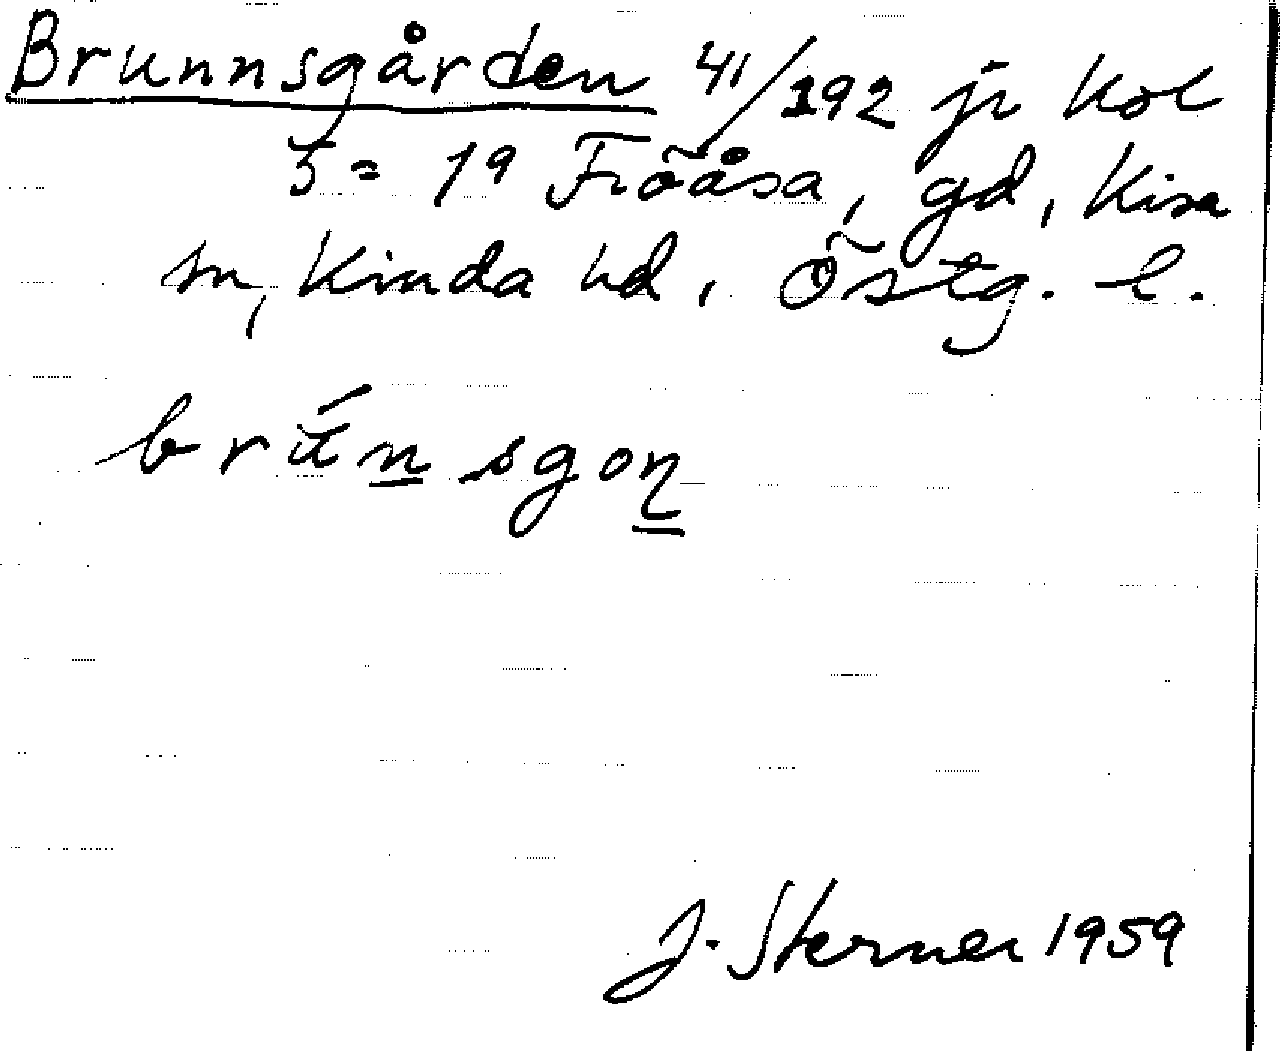 Brunnsgården 41/192 jr kol
5 = 19 Fröåsa, gd, Kisa
sn, Kinda hd, Östg. l.
brún sgon
J. Sterner 1959